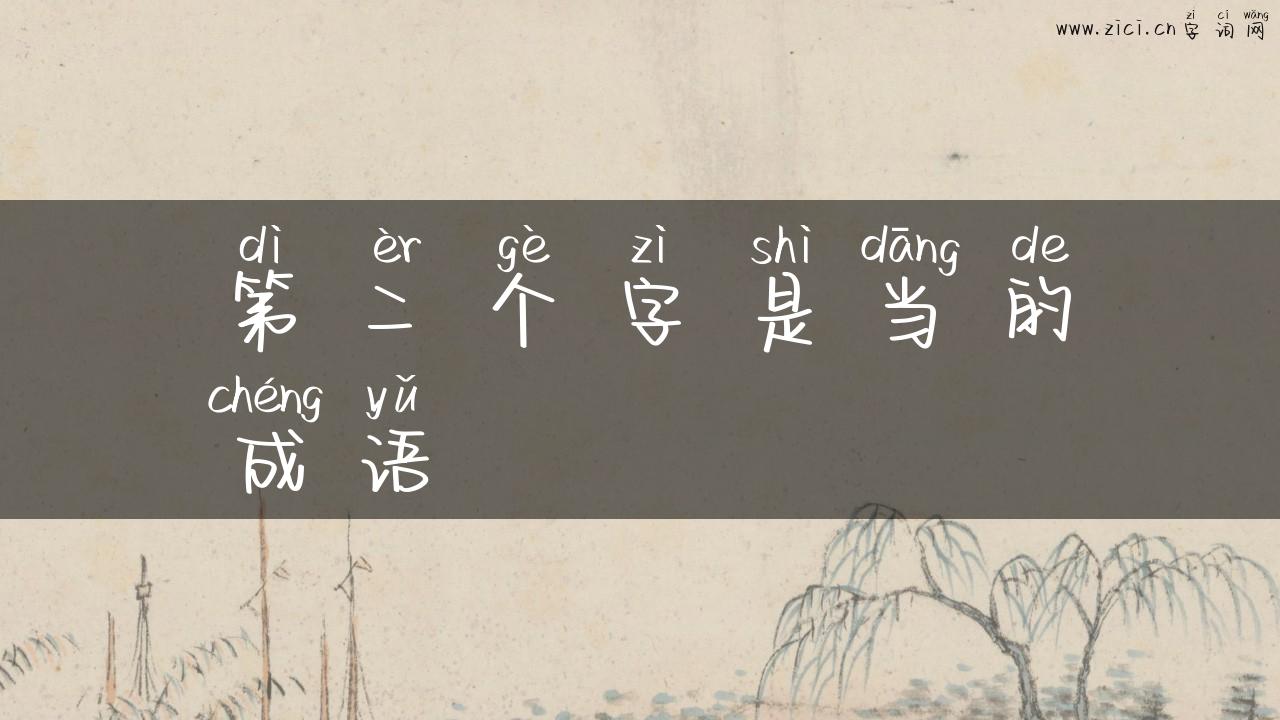 www.zici.cn 字词网
zì cí wǎng
dì èr gè zì shì dāng de
第二个字是当的
chéng yǔ
成语